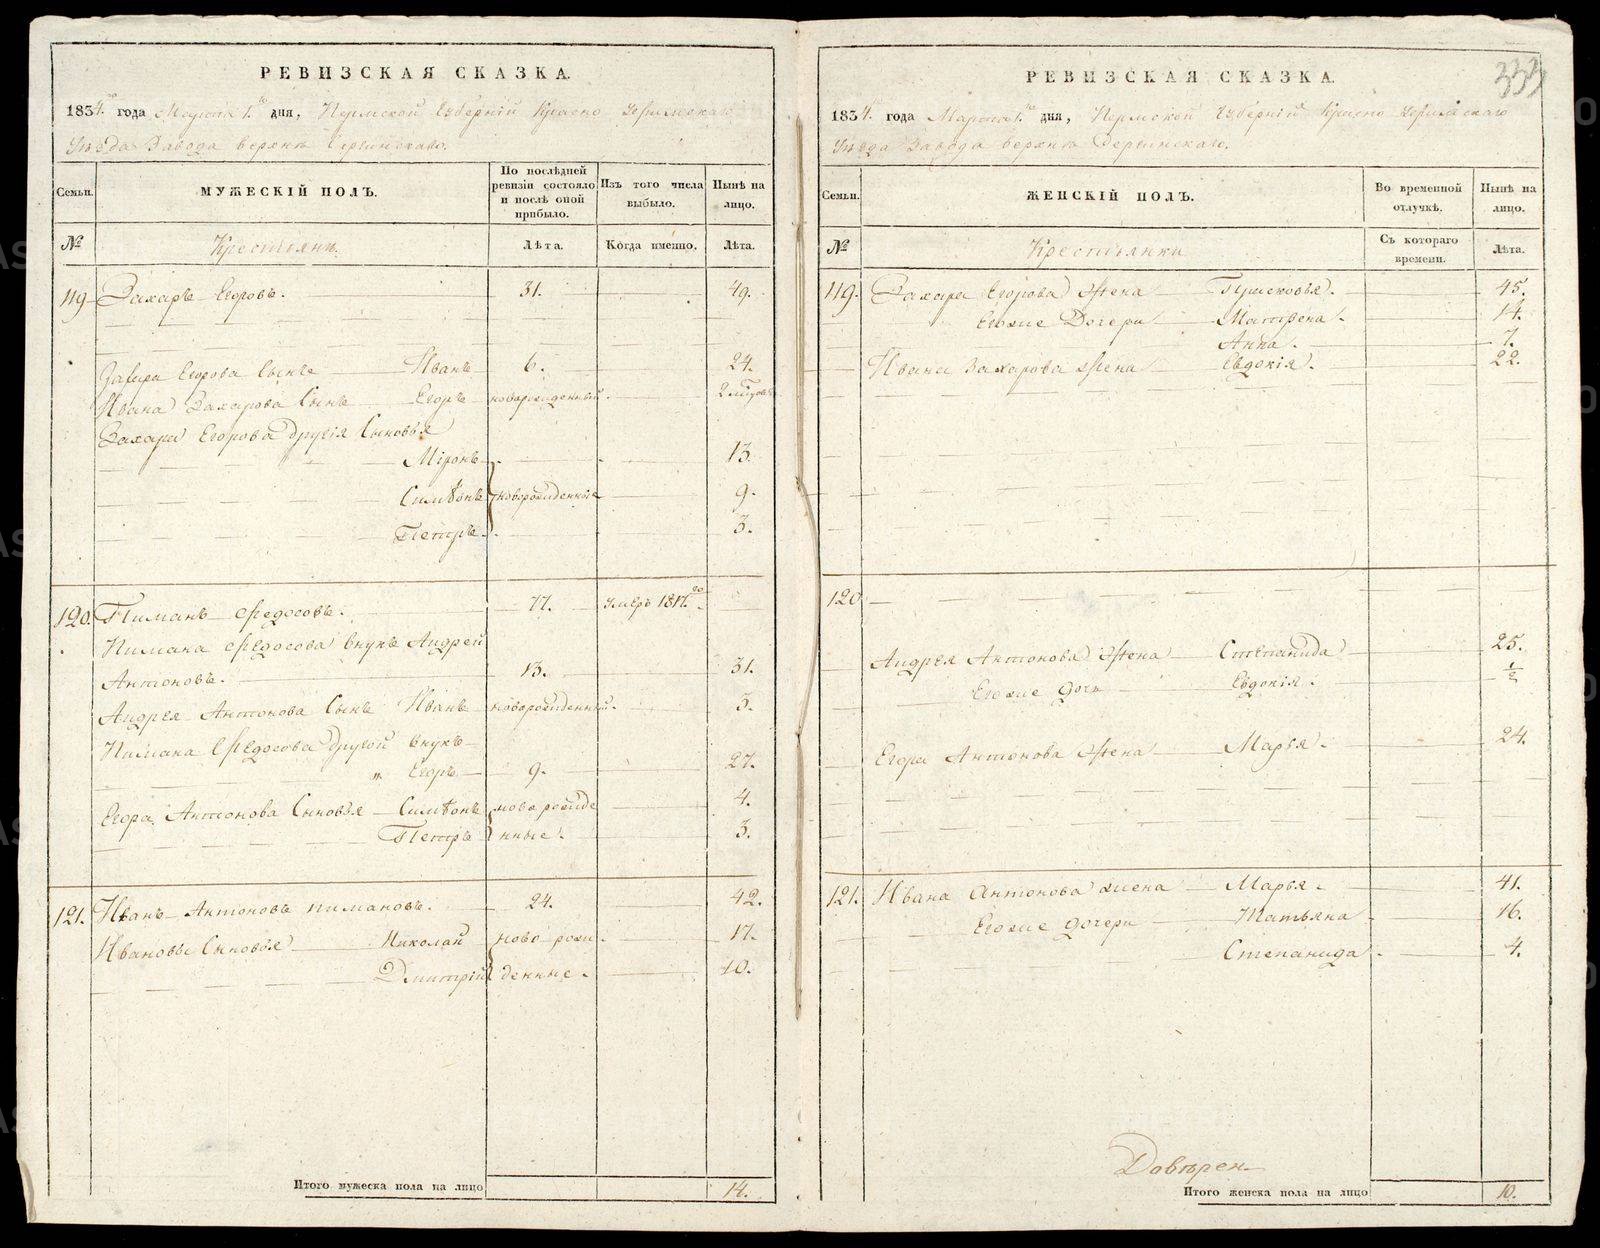 РЕВИЗСКАЯ СКАЗКА.
1834.го года Марта 1.го дня, Пермской Губерніи Красно Уфимскаго
Уѣзда Завода верхнѣ Сергинскаго.
Семьи.
МУЖЕСКІЙ ПОЛЪ.
По послѣдней ревизіи состояло и послѣ оной прибыло.
Изъ того числа выбыло.
Нынѣ на лицо.
№
Крестьянѣ.
Лѣта.
Когда именно.
Лѣта.
119 Захаръ Егоровъ. 31. 49.
Захара Егорова Сынъ Иванъ 6. 24.
Ивана Захарова Сынъ Егоръ новорожденный. 2
Захара Егорова другія Сыновья
Міронъ 13.
Симѣонъ новорожденные 9.
Петръ. 3.
120. Пиманъ Ѳедосовъ. 77. умеръ 1817.го
Пимана Ѳедосова внукъ Андрей
Антоновъ. 13. 31.
Андрея Антонова Сынъ Иванъ новорожденный. 3.
Пимана Ѳедосова другой внукъ
" Егоръ 9. 27.
Егора Антонова Сыновья Симѣонъ новорожде 4.
Петръ нные. 3.
121. Иванъ Антоновъ Пимановъ. 24. 42.
Ивановы Сыновья Николай ново рож 17.
Дмитрій денные. 10.
Итого мужеска пола на лицо 14.
333
РЕВИЗСКАЯ СКАЗКА.
1834.го года Марта 1.го дня, Пермской Губерніи Красно Уфимскаго
Уѣзда Завода верхнѣ Сергинскаго.
Семьи.
ЖЕНСКІЙ ПОЛЪ.
Во временной отлучкѣ.
Нынѣ на лицо.
№
Крестьянки
Съ котораго времени.
Лѣта.
119. Захара Егорова Жена Прасковья. 45.
Егожие Дочери Матрена. 14.
Анна. 7.
Ивана Захарова Жена Евдокія. 22.
120
Андрея Антонова Жена Степанида 25.
Егожие дочь Евдокія. 1/2
Егора Антонова Жена Марья. 24.
121. Ивана Антонова жена Марья. 41.
Егожие дочери Татьяна 16.
Степанида. 4.
Довѣрен
Итого женска пола на лицо 10.